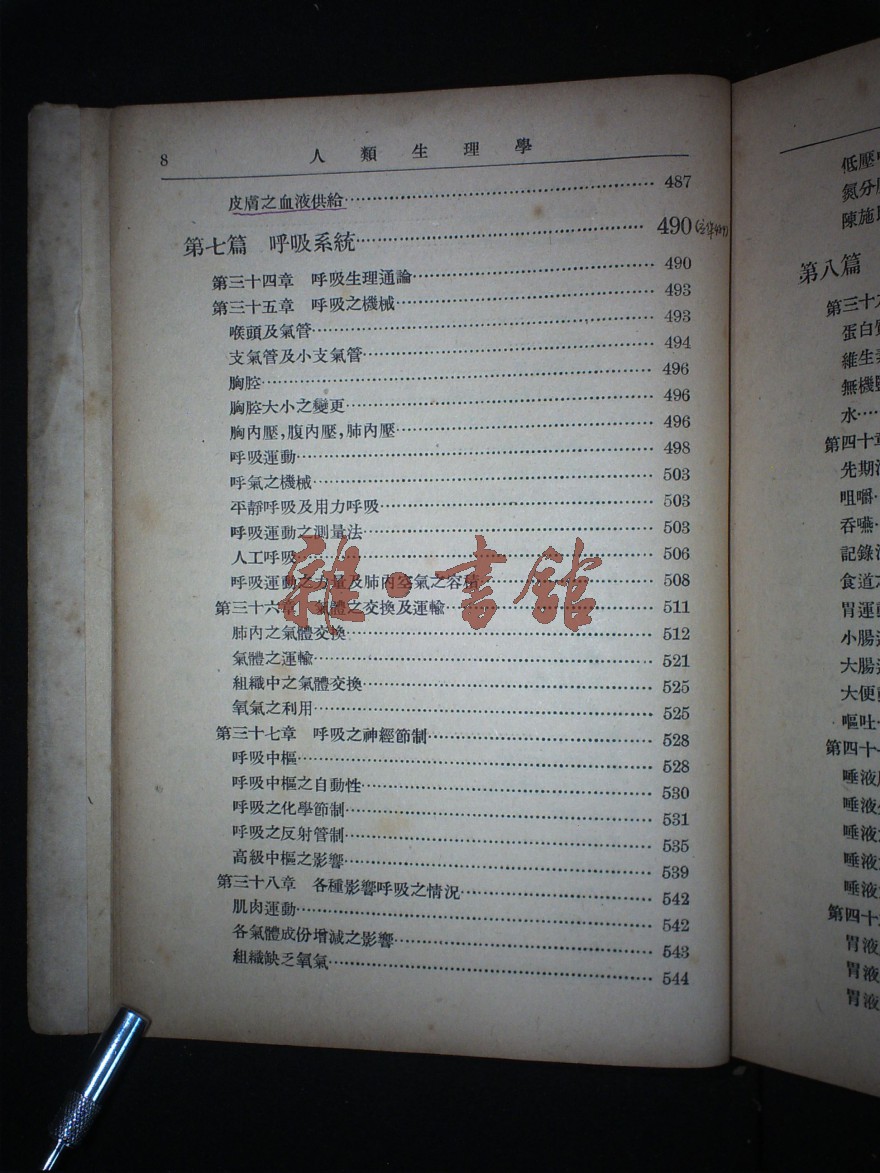 8 人類生理學
皮膚之血液供給 487
第七篇 呼吸系統 490
第三十四章 呼吸生理通論 490
第三十五章 呼吸之機械 493
喉頭及氣管 493
支氣管及小支氣管 494
胸腔 496
胸腔大小之變更 496
胸內壓,腹內壓,肺內壓 496
呼吸運動 498
呼氣之機械 503
平靜呼吸及用力呼吸 503
呼吸運動之測量法 503
人工呼吸 506
呼吸運動之力量及肺內空氣之容積 508
第三十六章 氣體之交換及運輸 511
肺內之氣體交換 512
氣體之運輸 521
組織中之氣體交換 525
氧氣之利用 525
第三十七章 呼吸之神經節制 528
呼吸中樞 528
呼吸中樞之自動性 530
呼吸之化學節制 531
呼吸之反射管制 535
高級中樞之影響 539
第三十八章 各種影響呼吸之情況 542
肌肉運動 542
各氣體成份增減之影響 543
組織缺乏氧氣 544
雜·書館
低壓
氮分
陳施
第八篇
第三十九
蛋白質
維生素
無機鹽
水
第四十章
先期
咀嚼
吞嚥
記錄
食道
胃運動
小腸
大腸
大便
嘔吐
第四十一
唾液
唾液
唾液
唾液
唾液
第四十
胃液
胃液
胃液